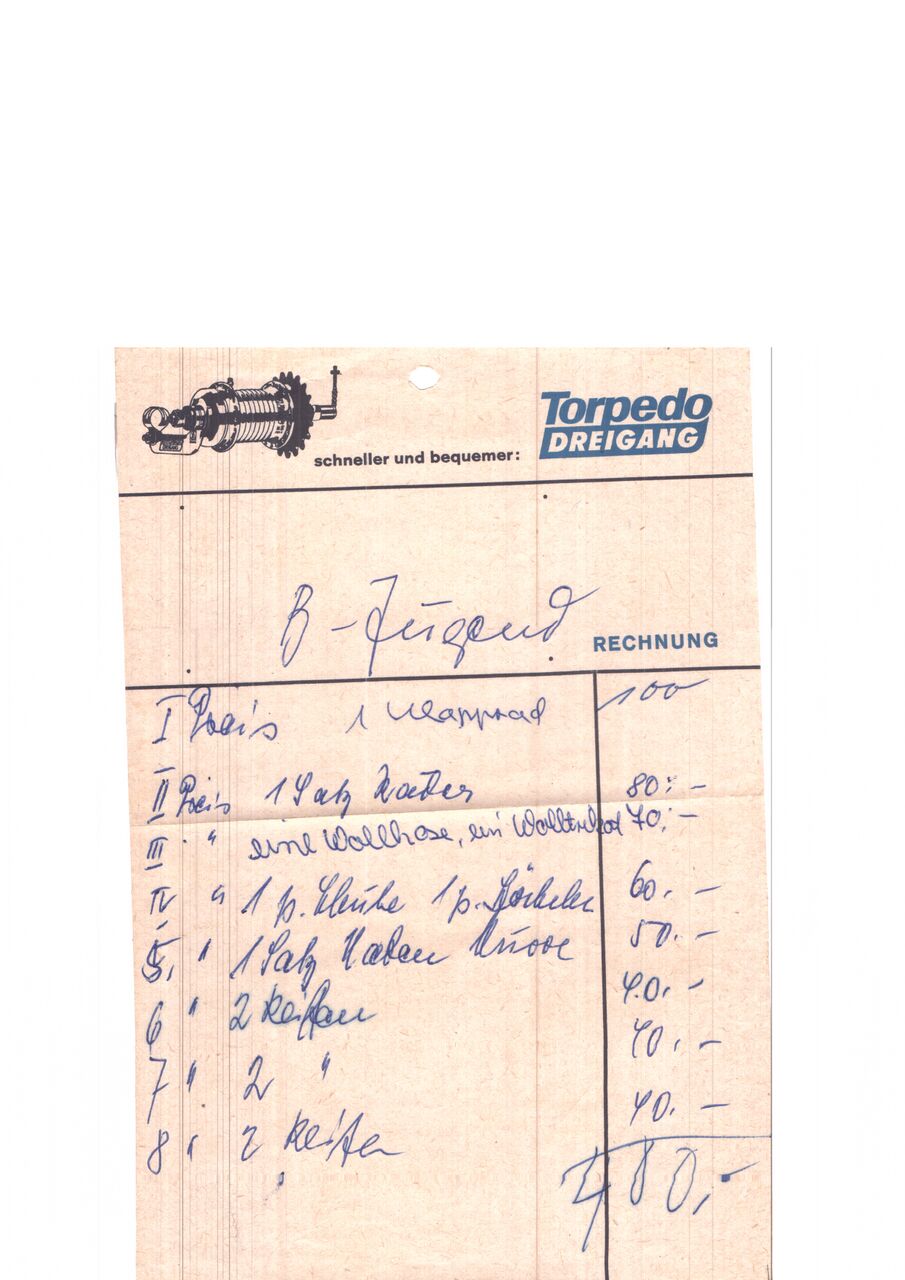 schneller und bequemer: Torpedo
DREIGANG
B-Jugend
RECHNUNG
I Preis 1 Klapprad 100
II Preis 1 Satz Räder 80.-
III " eine Wollhose, ein Wolltrikot 70.-
IV " 1 p. Schuhe 1 p. Söckchen 60.-
5. " 1 Satz Naben 50.-
6 " 2 Reifen 40.-
7 " 2 " 40.-
8 " 2 Reifen 40.-
480,-